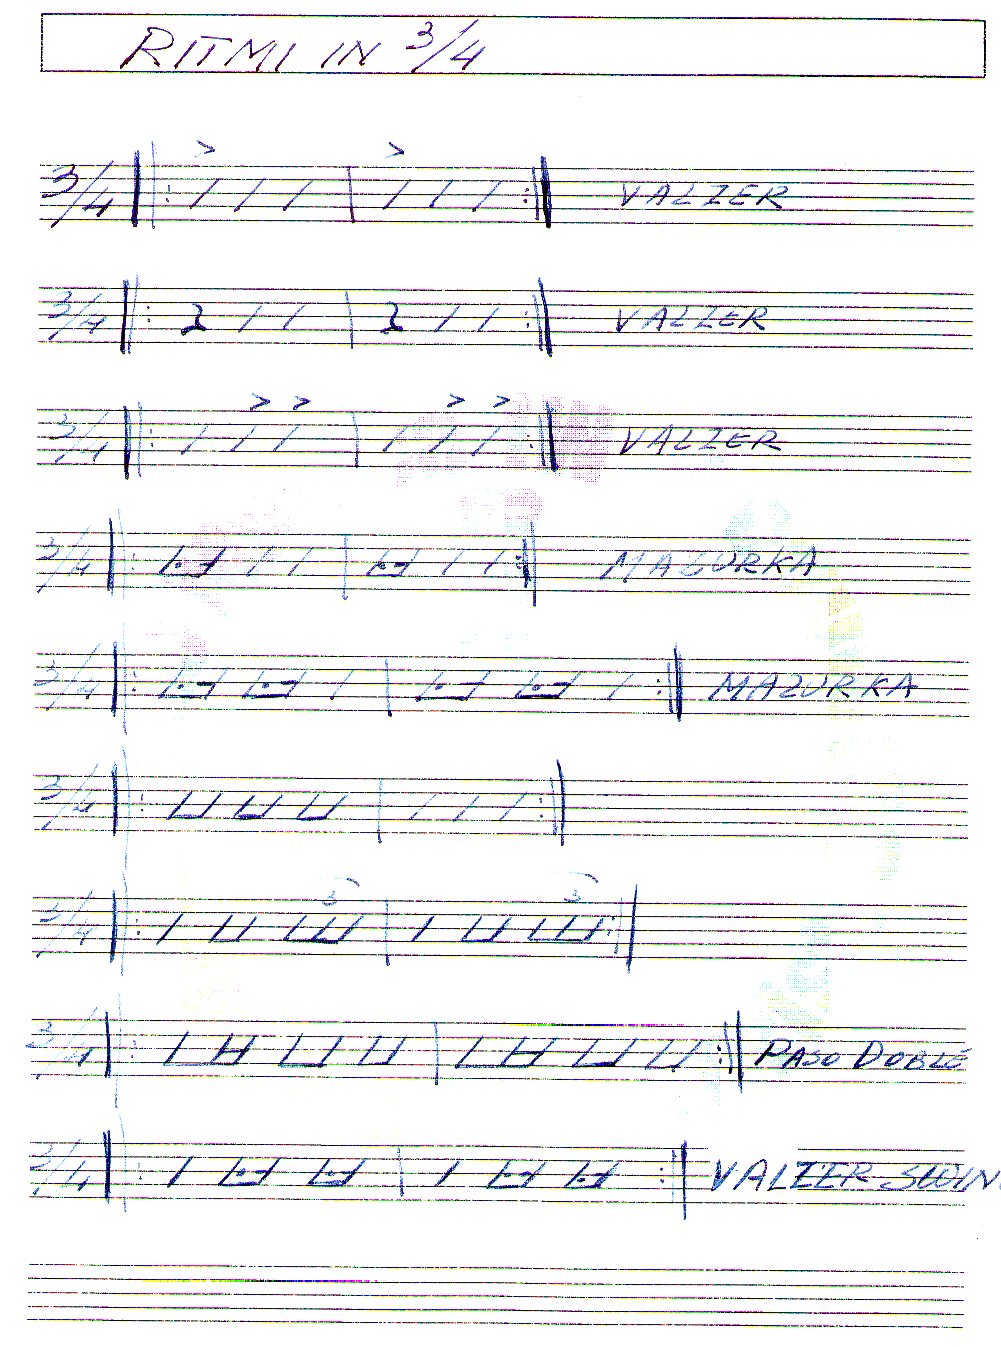 RITMI IN 3/4
3/4 > > VALZER
3/4 VALZER
3/4 > > > > VALZER
3/4 MAZURKA
3/4 MAZURKA
3/4
3/4 3 3
3/4 PASO DOBLE
3/4 VALZER SWIN